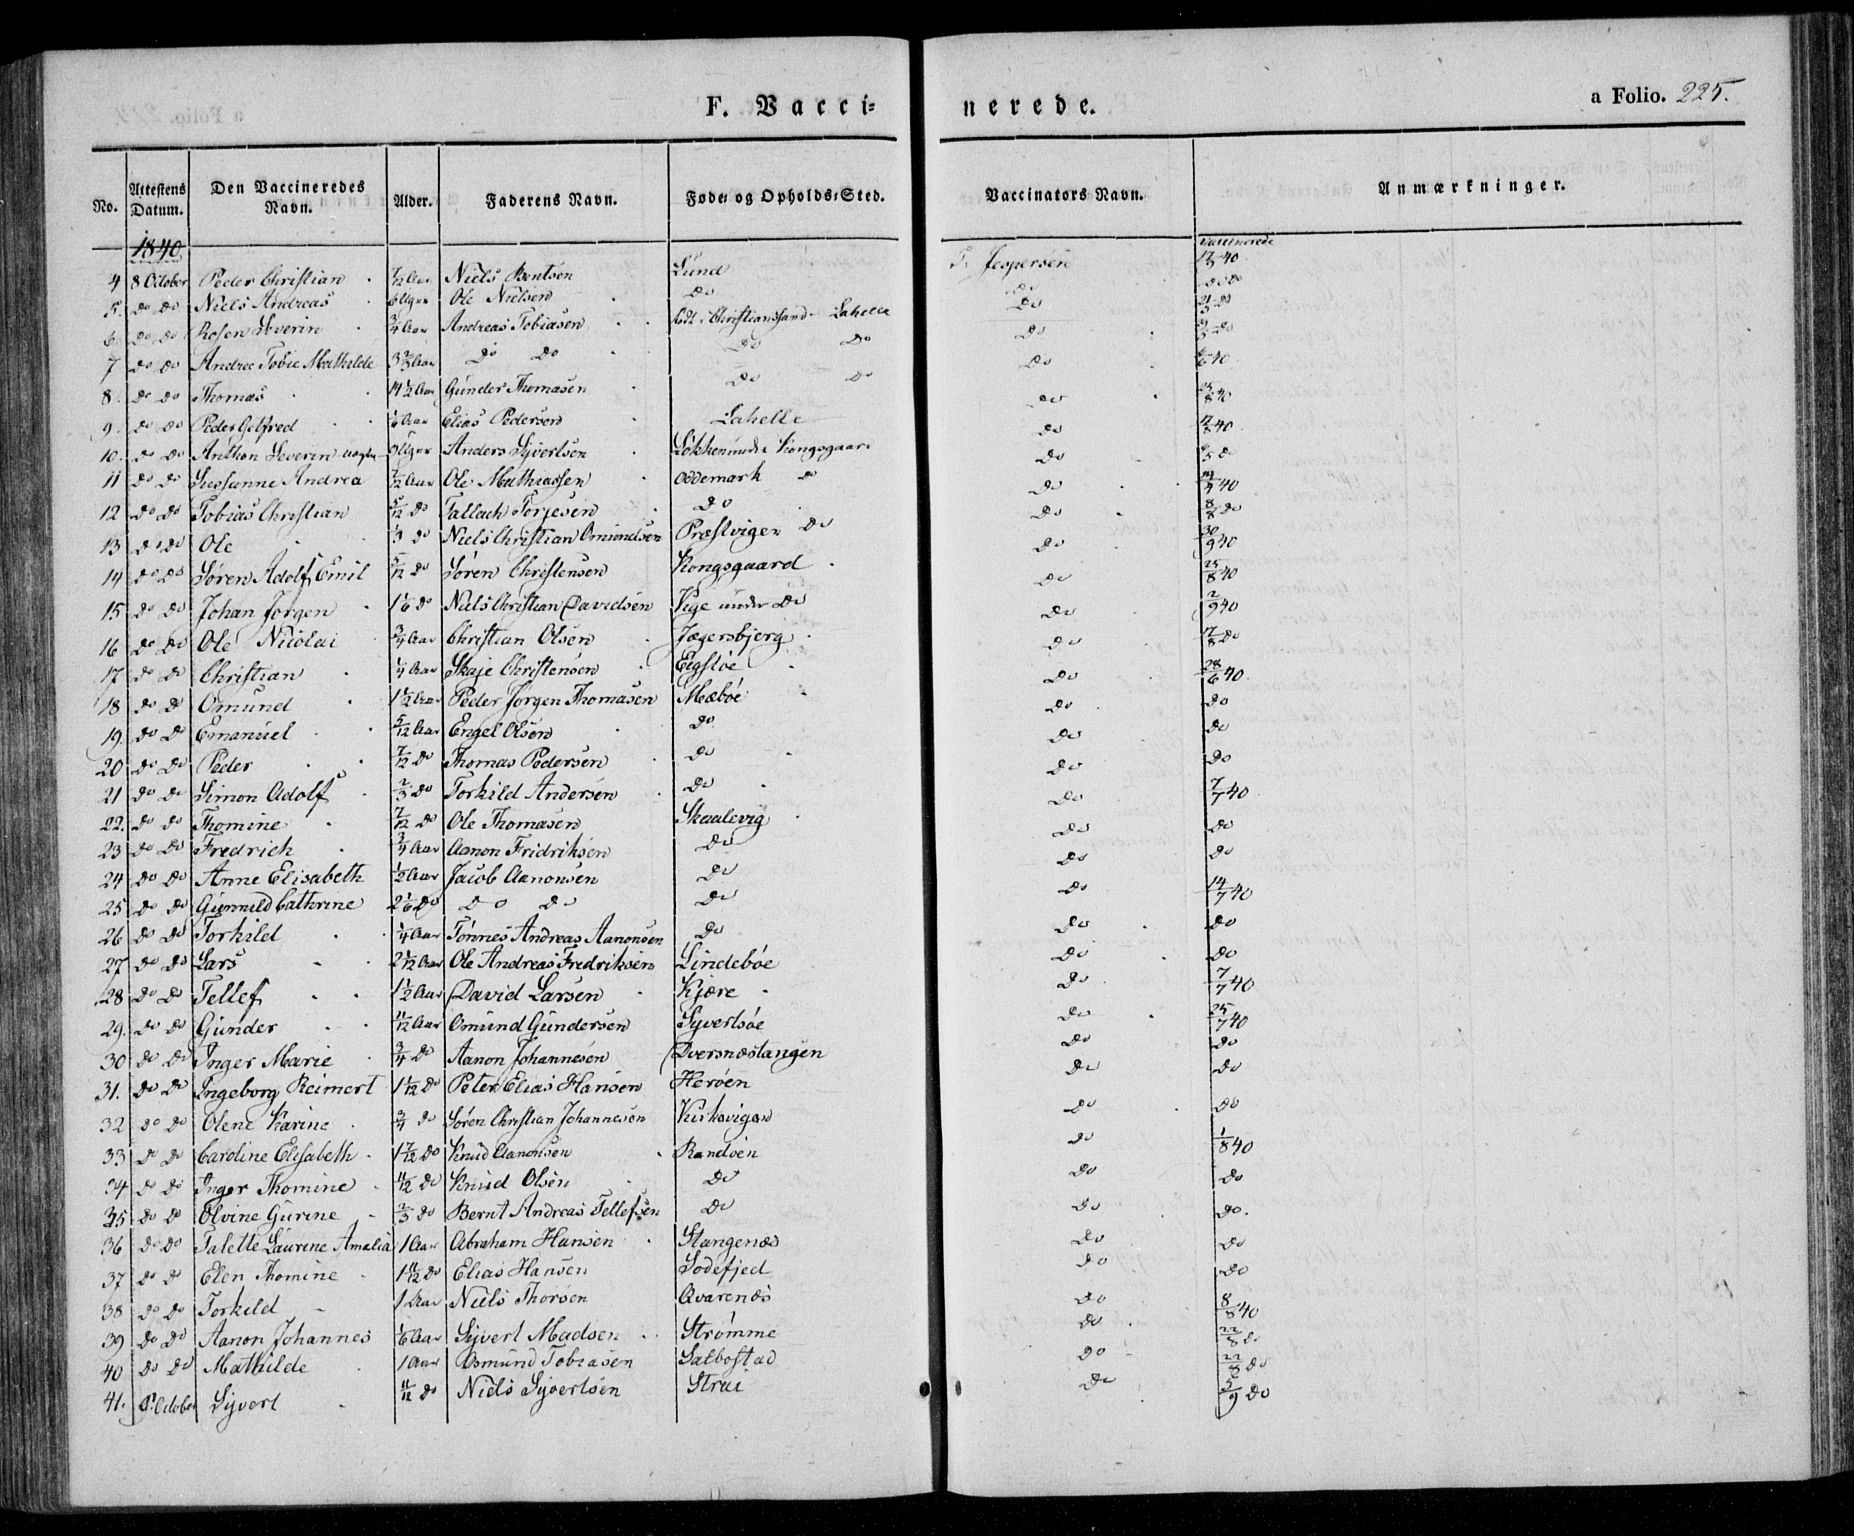 F. Vacci= nerede. a Folio. 225.
No. Attestens Datum. Den Vaccineredes Navn. Alder. Faderens Navn. Føde= og Opholds=Sted. Vaccinators Navn. Anmærkninger.
1840 Vaccinerede
4 8 October Peder Christian 7/12 Aar Niels Bentsen Lund Jespersen 17/8 40
5. do do Niels Andreas 6 Uger Ole Nielsen do do do do
6 do do Rosen Severin 3/4 Aar Andreas Tobiasen født i Christianssand Lahelle do
7 do do Andrea Tobie Mathilde 3 2/3 Aar do do do do do
8. do do Thomas 14 1/2 Aar Gunder Thomasen do do do 40
9 do do Peder Gelfred 1/6 Aar Elias Pedersen Lahelle do 25/8 40
10. do do Anthon Severin 9 Uger Anders Syvertsen Løkken under Kongsgaard do 17/8 40
11 do do Susanne Andrea 7/12 Aar Ole Mathiassen Oddemark do do
12 do do Tobias Christian 5/12 do Tallach Torjesen do do 40
13 do do Ole 1/3 do Niels Christian Omundsen Præstvigen do do 8/8 do
14 do do Søren Adolf Emil 5/12 do Søren Christensen Kongsgaard do 30/9 40
15 do do Johan Jørgen 1 1/6 do Niels Christian Davidsen Vige under do do 25/8 40
16 do do Ole Nicolai 3/4 Aar Christian Olsen Jægersbjerg do 2/9 40
17 do do Christian 1/4 Aar Skaje Christensen Eegstøe do 17/8 do
18 do do Omund 1 1/2 Aar Peder Jørgen Thomasen Mæbøe do 28/6 40
19. do do Emanuel 5/12 Aar Engel Olsen do do do
20 do do Peder 7/12 do Thomas Pedersen do do do
21 do do Simon Adolf 2/3 do Torkild Andersen do do do
22. do do Thomine 7/12 do Ole Thomasen Skaalevig do 7/7 40
23 do do Fredrich 3/4 Aar Aanon Fridriksen do do do
24 do do Anne Elisabeth 1/2 Aar Jacob Aanonsen do do do
25 do do Gunnild Cathrine 2 1/6 do do do do do 14/7 40
26 do do Torkild 1/4 Aar Tønnes Andreas Aanonsen do do do
27 do do Lars 2 1/12 Aar Ole Andreas Fredriksen Lindebøe do do
28 do do Tellef 1 1/2 Aar David Larsen Kjære do 7/7 40
29. do do Gunder 11/12 Aar Omund Gundersen Syvertsøe do 25/7 40
30 do do Inger Marie 3/4 do Aanon Johannesen Dversnæstangen do do
31. do do Ingeborg Reimert 1 1/12 do Peter Elias Hansen Herøen do do
32 do do Olene Karine 3/4 do Søren Christian Johannesen Kirkevigen do do
33 do do Caroline Elisabeth 1 7/12 do Knud Aanonsen Randøen do 1/8 40
34 do do Inger Thomine 11/12 do Knud Olsen do do do
35 do do Olvine Gurine 2/3 do Bernt Andreas Tellefsen do do do.
36 do do Talette Laurine Amalia 1 Aar Abraham Hansen Stangenæs do do
37 do do Elen Thomine 1 11/12 do Elias Hansen Sodefjed do do
38 do do Torkild 1 Aar Niels Thorsen Qvarenæs do 8/8 40
39 do do Aanon Johannes 1/6 Aar Syvert Madsen Strømme do 22/8 do
40 do do Mathilde 1 Aar Osmund Tobiasen Salbostad do 22/8 do
41. October Syvert 11/12 do Niels Syvertsen Strai do 5/9 do